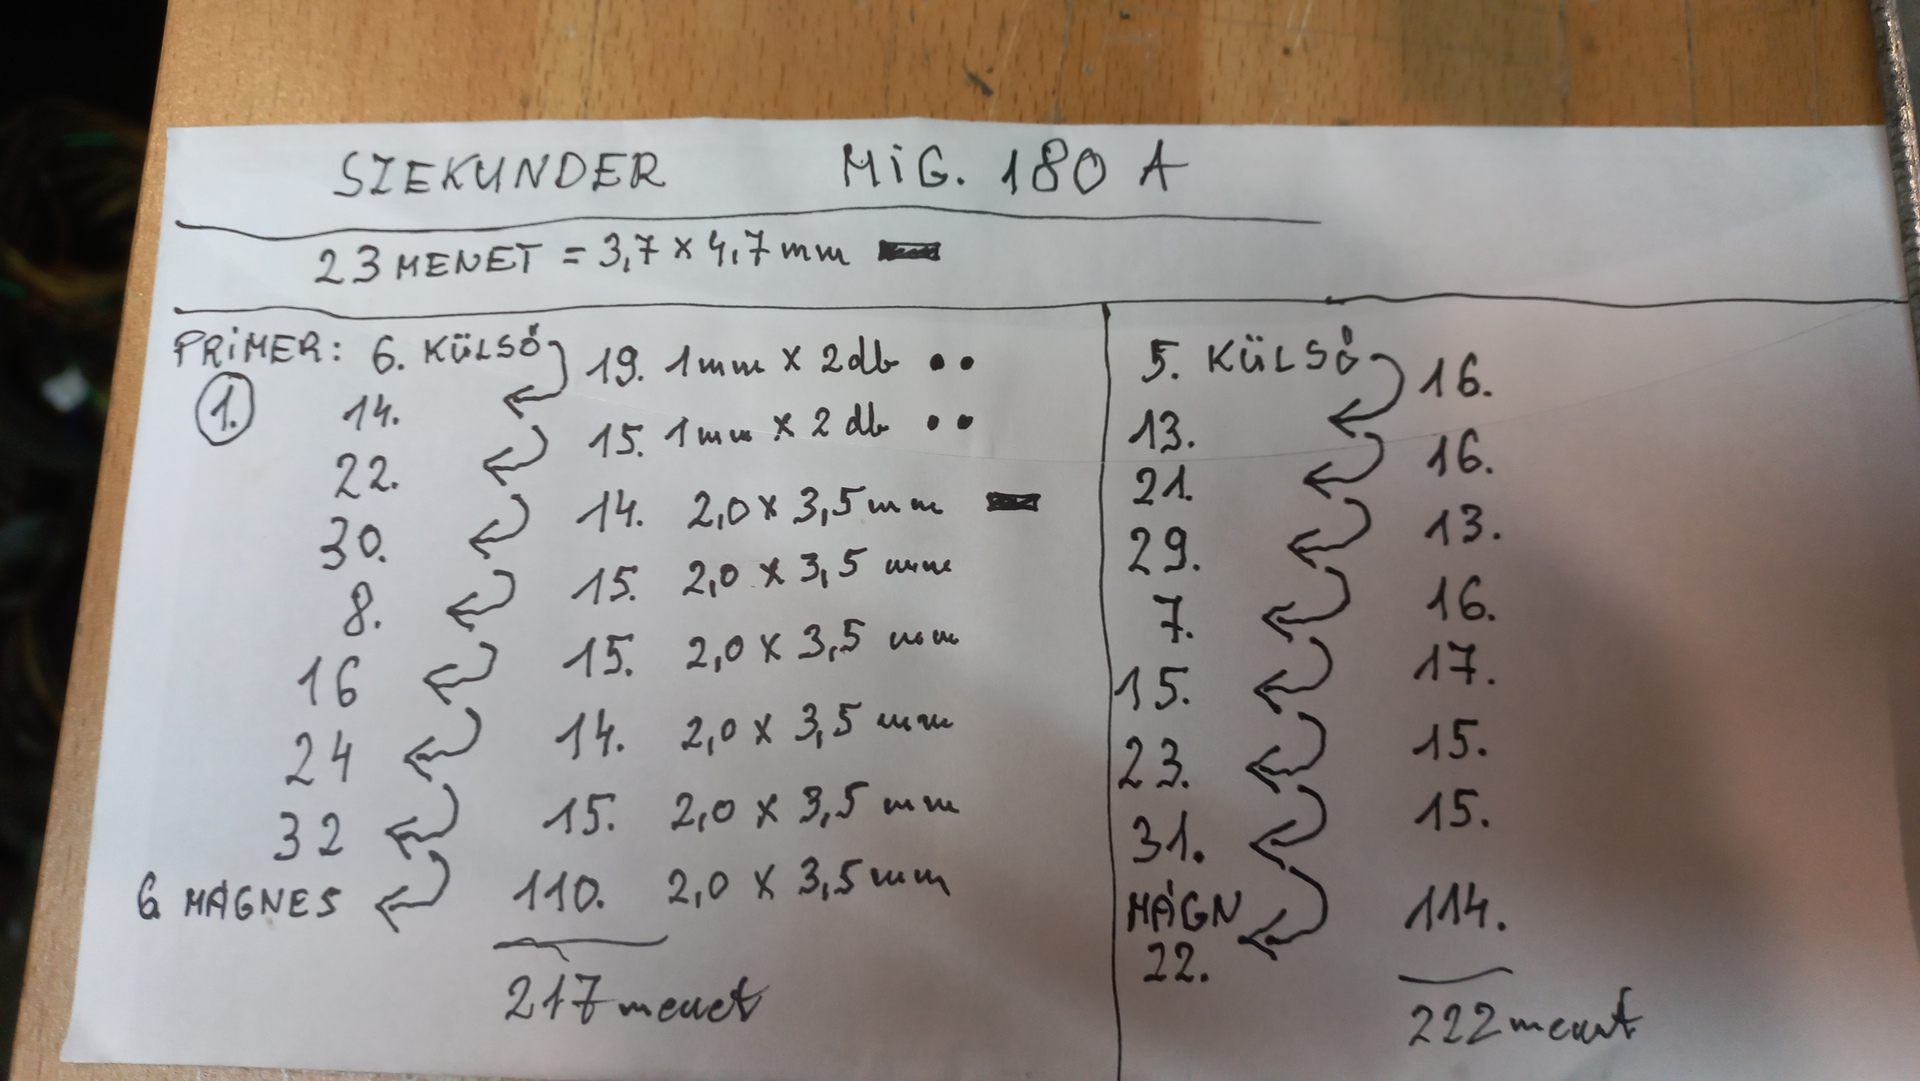 SZEKUNDER MIG. 180 A
23 MENET = 3,7 x 4,7 mm
PRIMER: 6. KÜLSŐ 19. 1mm x 2db
1. 14.
15. 1mm x 2 db
22.
14. 2,0 x 3,5 mm
30.
15. 2,0 x 3,5 mm
8.
15. 2,0 x 3,5 mm
16
14. 2,0 x 3,5 mm
24
15. 2,0 x 3,5 mm
32
110. 2,0 x 3,5 mm
6 MÁGNES
217 menet
5. KÜLSŐ 16.
13.
16.
21.
13.
29.
16.
7.
17.
15.
15.
23.
15.
31.
MÁGN 114.
22.
222 menet